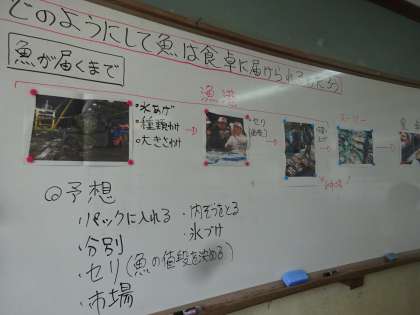 どのようにして魚は食卓に届けられるのだろう
魚が届くまで
漁港
・水あげ
・種類わけ
・大きさわけ
セリ
スーパー
◎予想
・パックに入れる
・内ぞうをとる
・分別
・氷づけ
・セリ(魚の値段を決める)
・市場